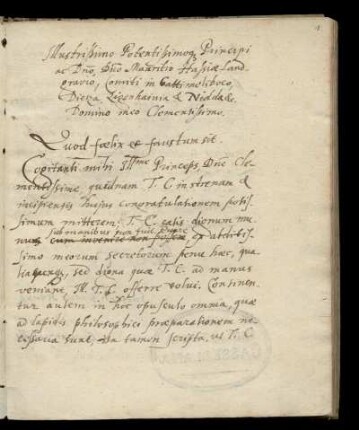 Illustrissimo Potentissimoq Principi
ac Dno, Dno Mauritio Hassiæ Land-
gravio, Comiti in Cattimeliboco,
Dietza, Ziegenhainia & Nidda &c.
Domino meo Clementissimo.
Quod foelix et faustum sit.
Cogitanti mihi Illme Princeps, Dne Cle-
mentissime, quidnam T. C. in strenam &
incipientis huius congratulationem potis-
simum mitterem, T. C. satis dignum
ex abditis-
simo meorum secretorum penu hæc, qua-
liacunq, sed digna quæ T. C. ad manus
veniant, Ill. T. C. offerre volui. Continen-
tur autem in hoc opusculo omnia, quæ
ad lapidis philosophici præparationem ne-
cessaria sunt, ita tamen scripta, ut T. C.